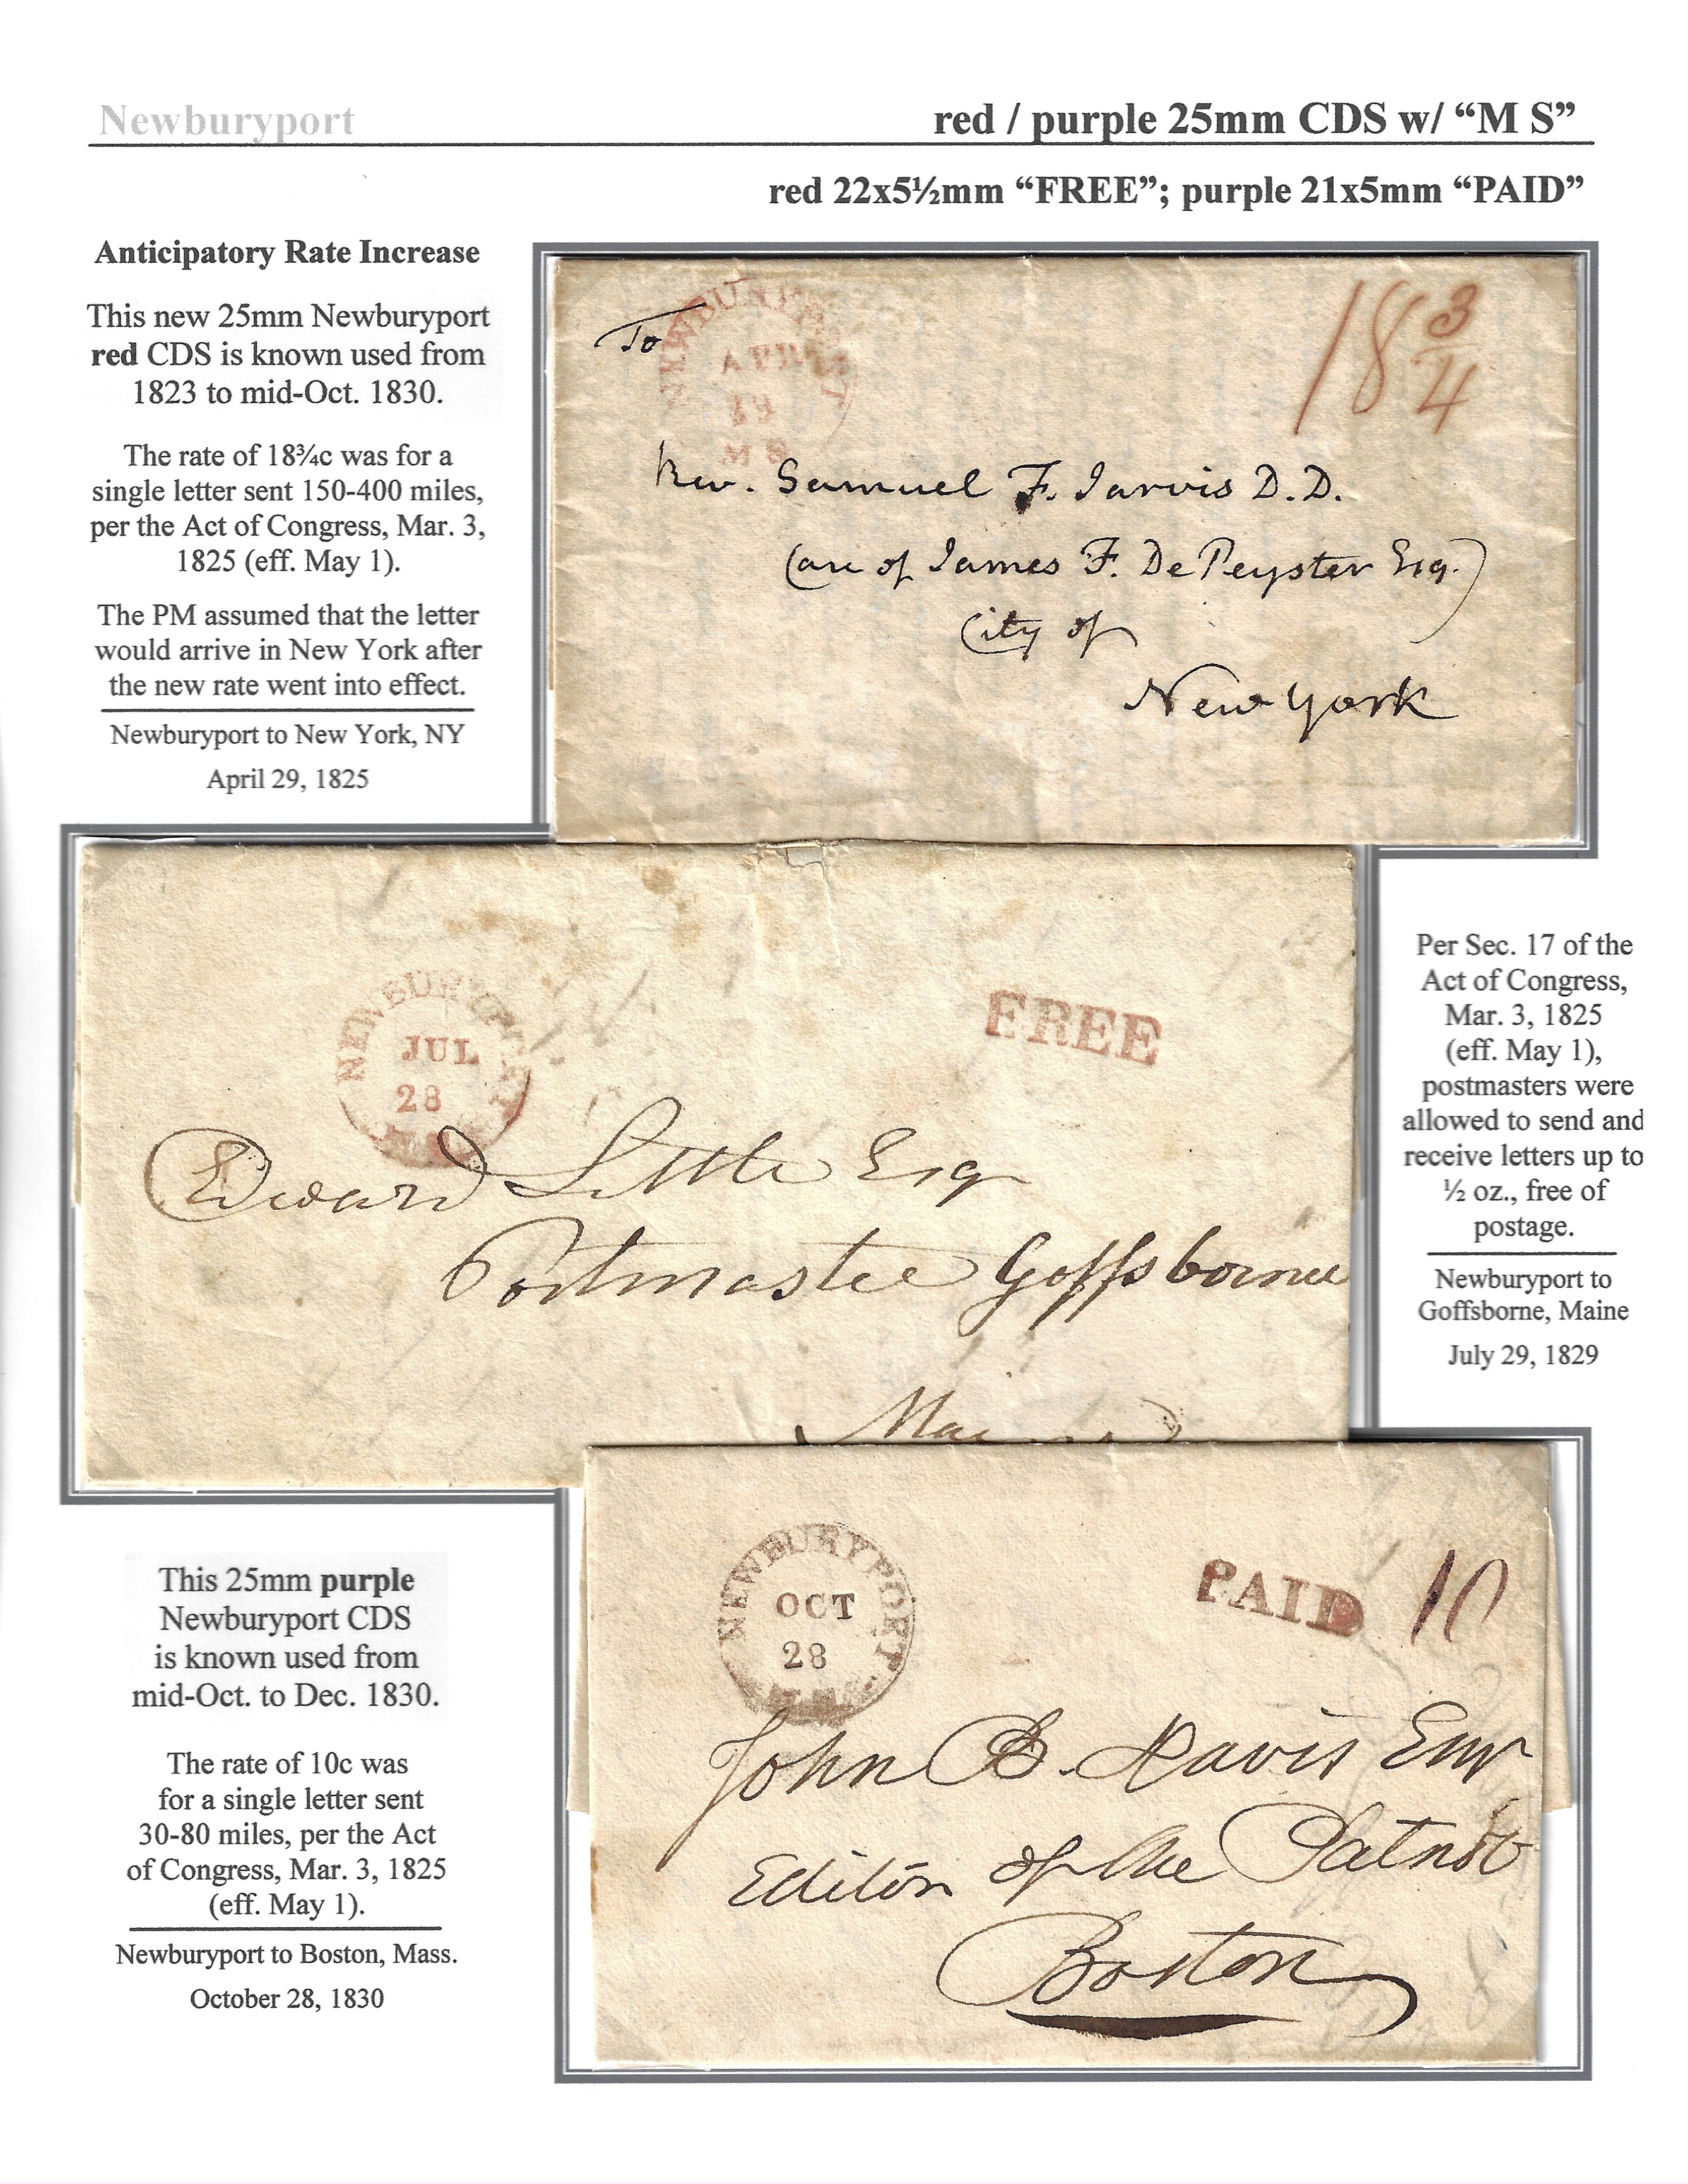 Newburyport
red / purple 25mm CDS w/ “M S”
red 22x5½mm “FREE”; purple 21x5mm “PAID”
Anticipatory Rate Increase
This new 25mm Newburyport
red CDS is known used from
1823 to mid-Oct. 1830.
The rate of 18¾c was for a
single letter sent 150-400 miles,
per the Act of Congress, Mar. 3,
1825 (eff. May 1).
The PM assumed that the letter
would arrive in New York after
the new rate went into effect.
Newburyport to New York, NY
April 29, 1825
NEWBURYPORT
APR
29
M S
18 3/4
To
Rev. Samuel F. Jarvis D.D.
(care of James F. De Peyster Esq.)
City of
New York
NEWBURYPORT
JUL
28
FREE
Edward Little Esq
Postmaster Goffsborne
Maine
Per Sec. 17 of the
Act of Congress,
Mar. 3, 1825
(eff. May 1),
postmasters were
allowed to send and
receive letters up to
½ oz., free of
postage.
Newburyport to
Goffsborne, Maine
July 29, 1829
This 25mm purple
Newburyport CDS
is known used from
mid-Oct. to Dec. 1830.
The rate of 10c was
for a single letter sent
30-80 miles, per the Act
of Congress, Mar. 3, 1825
(eff. May 1).
Newburyport to Boston, Mass.
October 28, 1830
NEWBURYPORT
OCT
28
PAID 10
John B. Davis Esqr
Editor of the Patriot
Boston